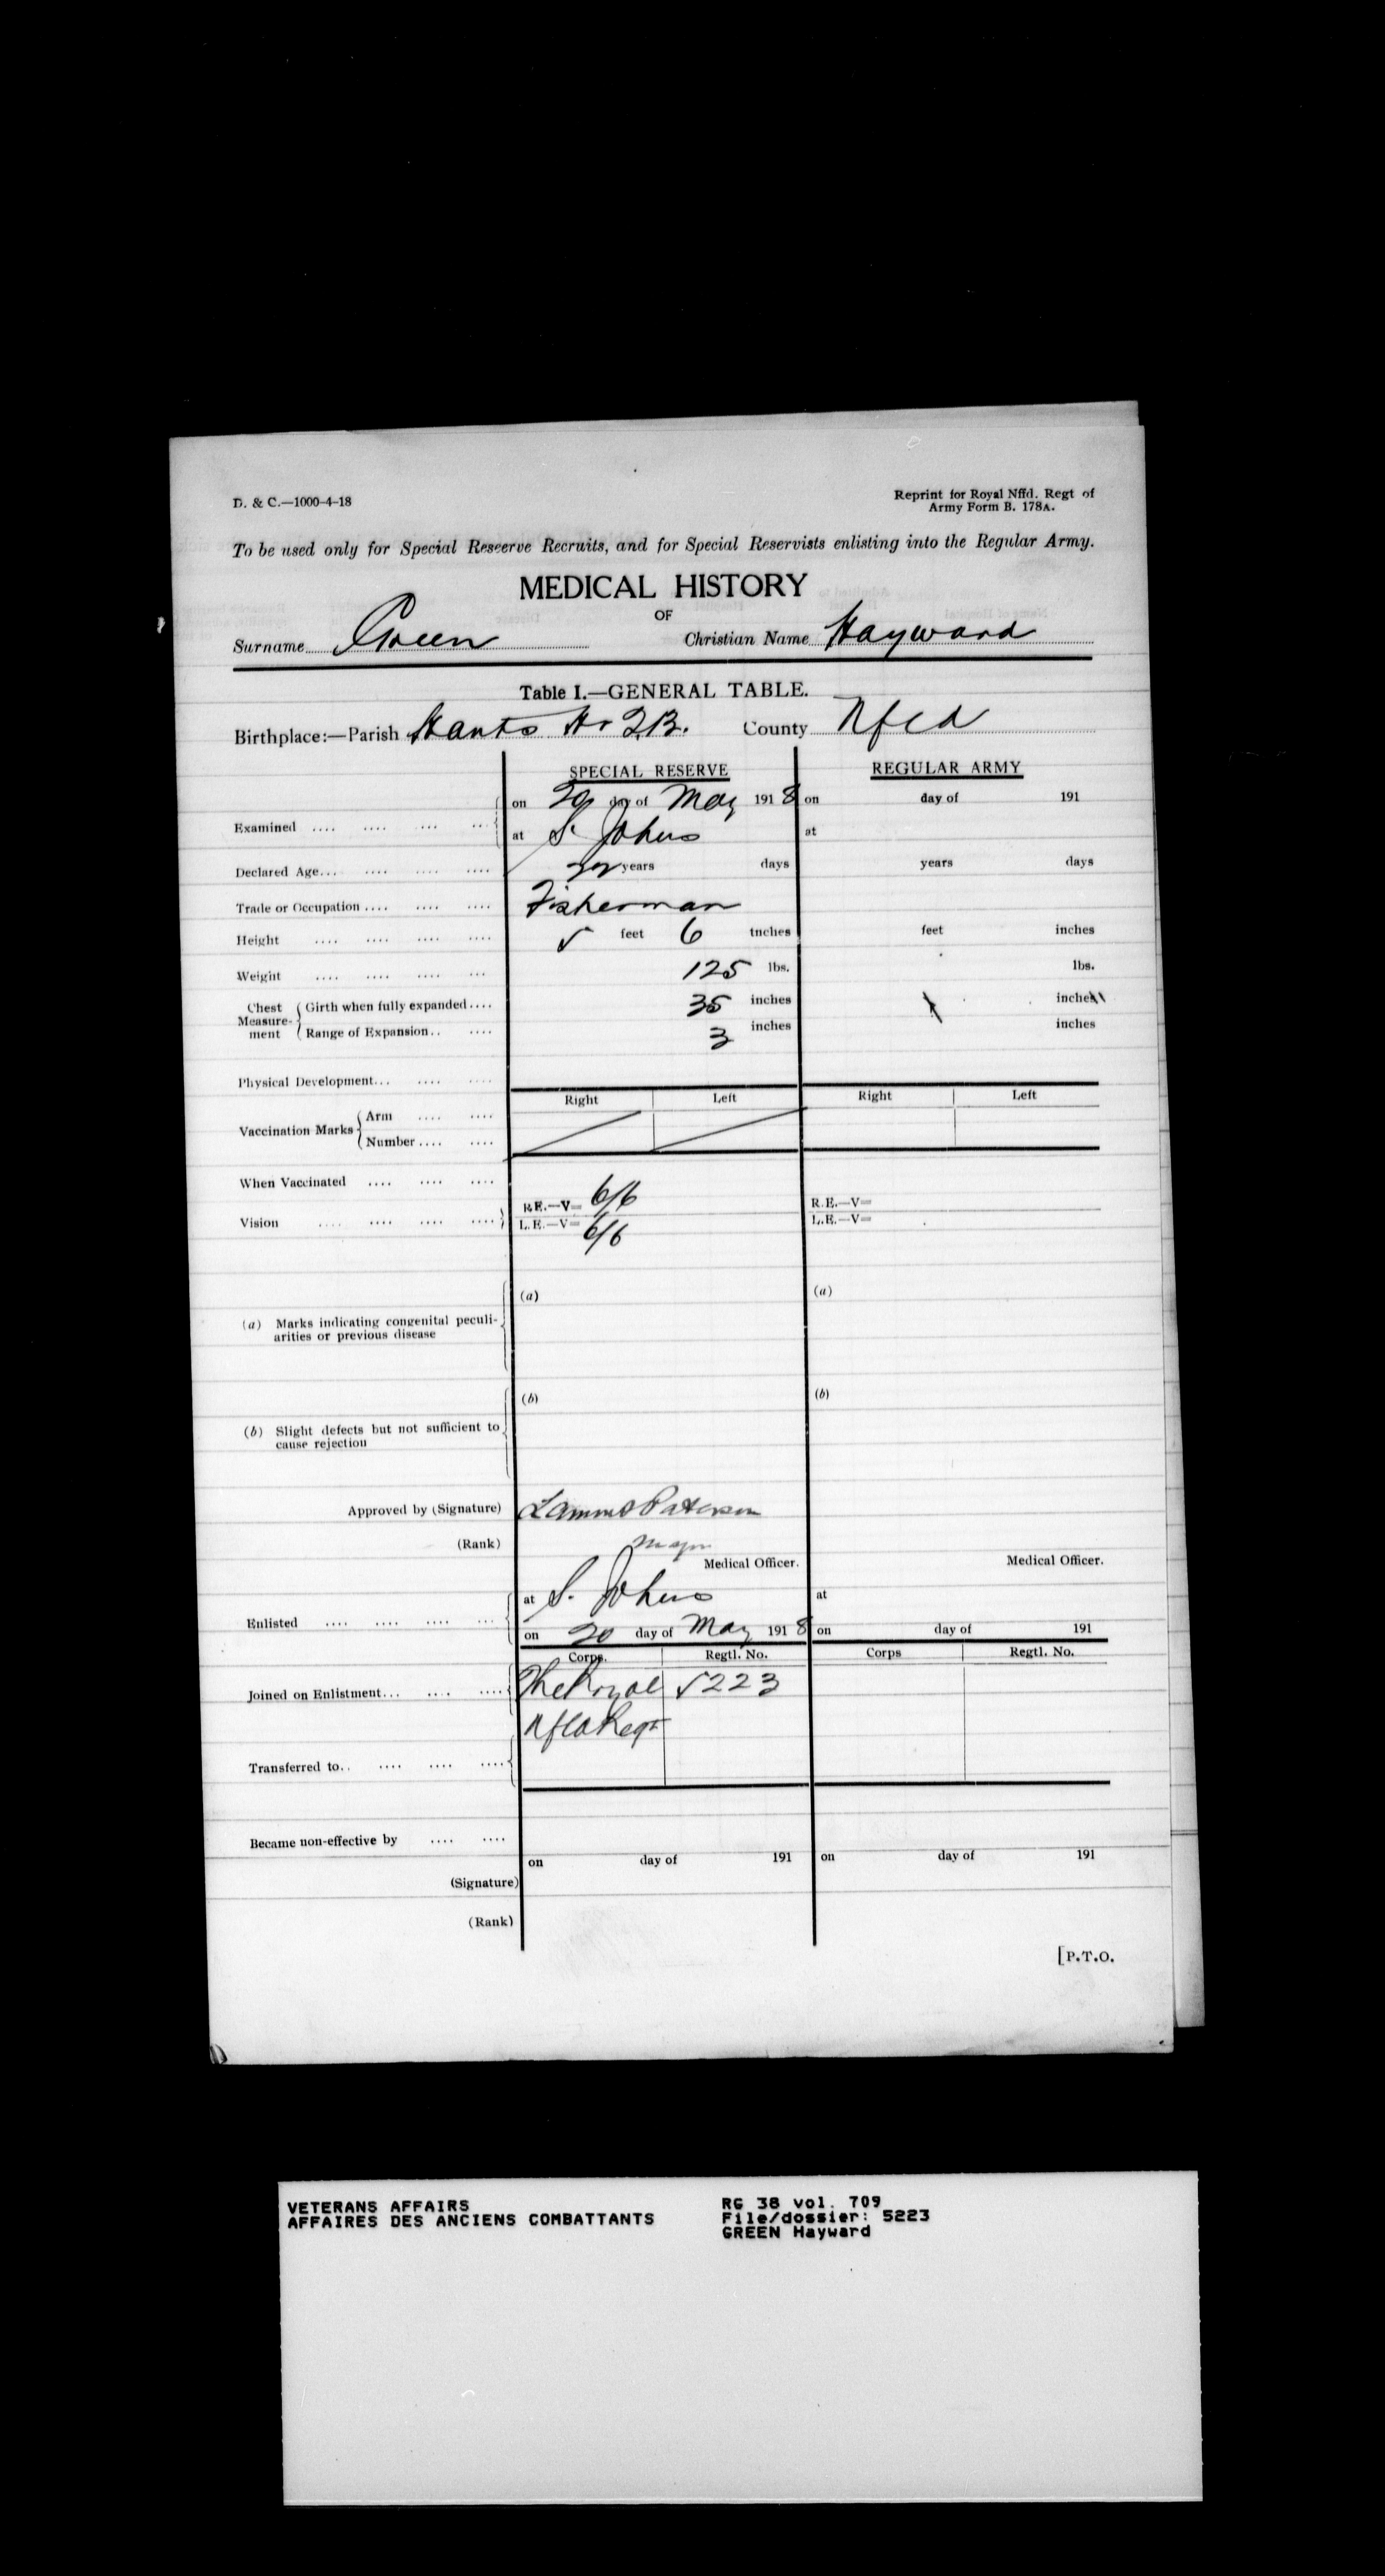 D. & C.—1000-4-18
Reprint for Royal Nffd. Regt of
Army Form B. 178A.
To be used only for Special Reserve Recruits, and for Special Reservists enlisting into the Regular Army.
MEDICAL HISTORY
OF
Surname Green Christian Name Hayward
Table I.—GENERAL TABLE.
Birthplace:—Parish Hants Hr T.B. County Nfld
SPECIAL RESERVE REGULAR ARMY
Examined .... .... ... ... on 20 day of May 1918 on day of 191
at S. Johns at
Declared Age... .... .... .... 22 years days years days
Trade or Occupation .... .... .... Fisherman
Height .... .... .... .... 5 feet 6 inches feet inches
Weight .... .... .... ... 125 lbs. lbs.
Chest Measurement Girth when fully expanded.... 35 inches inches
Range of Expansion.. .... 3 inches inches
Physical Development... .... ....
Right Left Right Left
Vaccination Marks Arm .... ....
Number .... ....
When Vaccinated .... .... ....
Vision .... .... .... .... R.E.—V= 6/6 R.E.—V=
L.E.—V= 6/6 L.E.—V=
(a) (a)
(a) Marks indicating congenital peculi-
arities or previous disease
(b) (b)
(b) Slight defects but not sufficient to
cause rejection
Approved by (Signature) Paterson
(Rank) Major
Medical Officer. Medical Officer.
at S. Johns at
Enlisted .... .... .... ...
on 20 day of May 1918 on day of 191
Corps. Regtl. No. Corps Regtl. No.
Joined on Enlistment... .... .... The Royal 5223
Nfld Regt
Transferred to.. .... .... ....
Became non-effective by .... ....
on day of 191 on day of 191
(Signature)
(Rank)
[P.T.O.
VETERANS AFFAIRS RG 38 vol. 709
AFFAIRES DES ANCIENS COMBATTANTS File/dossier: 5223
GREEN Hayward